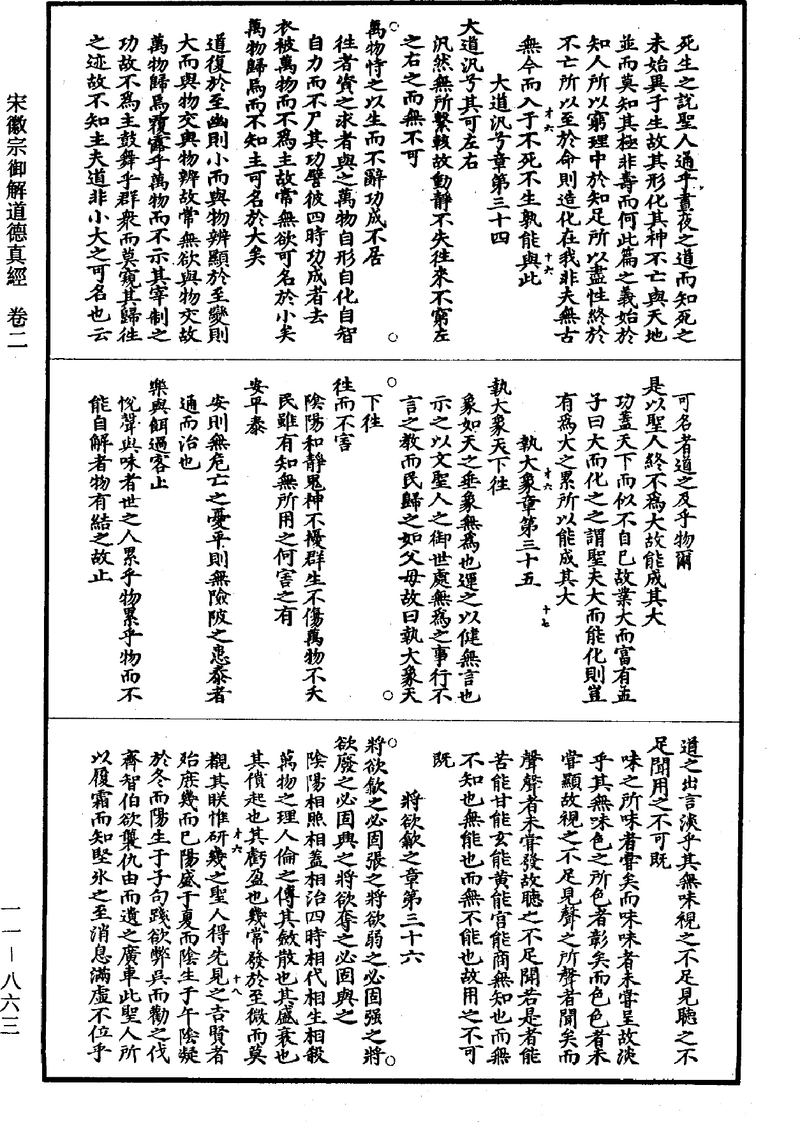 宋徽宗御解道德真經　卷二
一一－八六三
死生之說聖人通乎晝夜之道而知死之
未始異于生故其形化其神不亡與天地
並而莫知其極非壽而何此篇之義始於
知人所以窮理中於知足所以盡性終於
不亡所以至於命則造化在我非夫無古
無今而入于不死不生孰能與此
大道汎兮章第三十四
大道汎兮其可左右
汎然無所繫輆故動靜不失往來不窮左
之右之而無不可
萬物恃之以生而不辭功成不居
往者資之求者與之萬物自形自化自智
自力而不尸其功譬彼四時功成者去
衣被萬物而不為主故常無欲可名於小矣
萬物歸焉而不知主可名於大矣
道復於至幽則小而與物辨顯於至變則
大而與物交與物辨故常無欲與物交故
萬物歸焉覆露乎萬物而不示其宰制之
功故不為主鼓舞乎群衆而莫窺其歸往
之迹故不知主夫道非小大之可名也云
可名者道之及乎物爾
是以聖人終不為大故能成其大
功蓋天下而似不自已故業大而富有孟
子曰大而化之之謂聖夫大而能化則豈
有為大之累所以能成其大
執大象章第三十五
執大象天下往
象如天之垂象無為也運之以健無言也
示之以文聖人之御世處無為之事行不
言之教而民歸之如父母故曰執大象天
下往
往而不害
陰陽和靜鬼神不擾群生不傷萬物不夭
民雖有知無所用之何害之有
安平泰
安則無危亡之憂平則無險陂之患泰者
通而治也
樂與餌過客止
悅聲與味者世之人累乎物累乎物而不
能自解者物有結之故止
道之出言淡乎其無味視之不足見聽之不
足聞用之不可既
味之所味者嘗矣而味味者未嘗呈故淡
乎其無味色之所色者彰矣而色色者未
嘗顯故視之不足見聲之所聲者聞矣而
聲聲者未嘗發故聽之不足聞若是者能
苦能甘能玄能黃能宮能商無知也而無
不知也無能也而無不能也故用之不可
既
將欲歙之章第三十六
將欲歙之必固張之將欲弱之必固强之將
欲廢之必固興之將欲奪之必固與之
陰陽相照相蓋相治四時相代相生相殺
萬物之理人倫之傳其斂散也其盛衰也
其僨起也其虧盈也幾常發於至微而莫
覩其眹惟研幾之聖人得先見之吉賢者
殆庶幾而已陽盛于夏而陰生于午陰凝
於冬而陽生于子句踐欲弊吳而勸之伐
齊智伯欲襲仇由而遺之廣車此聖人所
以履霜而知堅氷之至消息滿虛不位乎